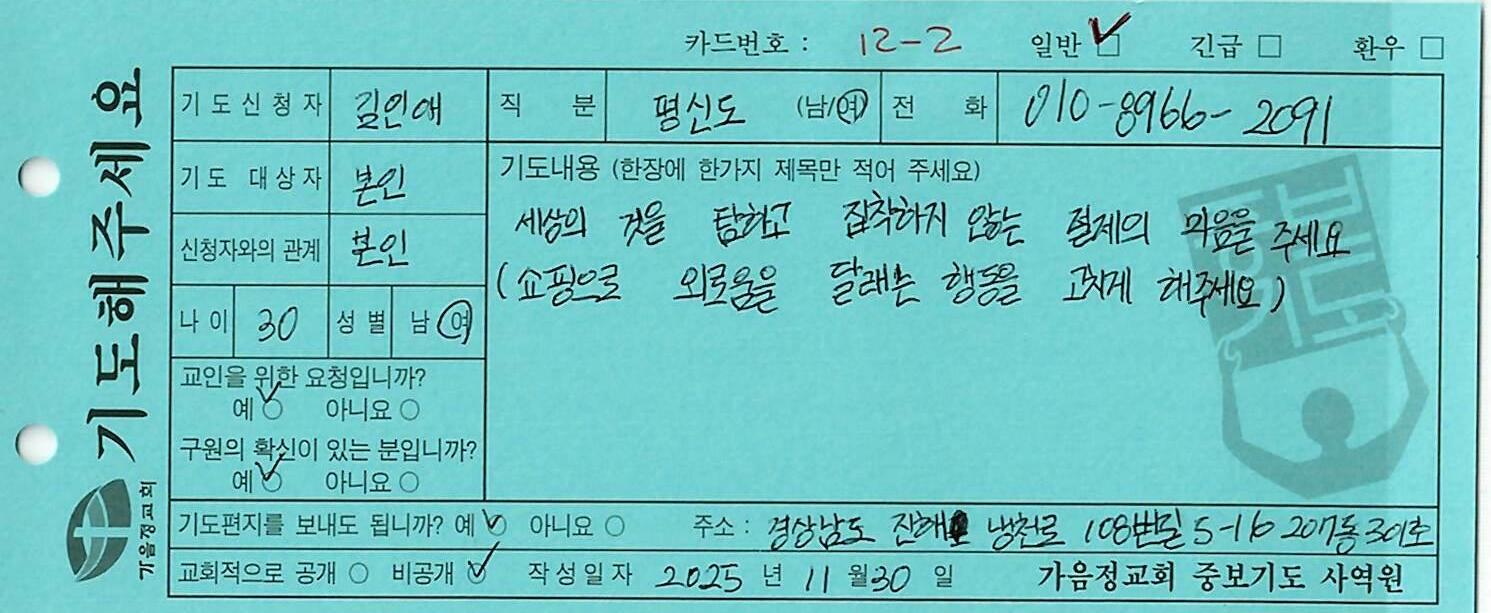 카드번호 : 12-2 일반 ☑ 긴급 □ 환우 □
기도해주세요
가음정교회
기도신청자 김인애 직 분 평신도 (남/여) 전 화 010-8966-2091
기도 대상자 본인
신청자와의 관계 본인
나이 30 성별 남 여
교인을 위한 요청입니까?
예 ○ 아니요 ○
구원의 확신이 있는 분입니까?
예 ○ 아니요 ○
기도내용 (한장에 한가지 제목만 적어 주세요)
세상의 것을 탐하고 집착하지 않는 절제의 마음을 주세요
(쇼핑으로 외로움을 달래는 행동을 고치게 해주세요)
중보기도
기도편지를 보내도 됩니까? 예 ○ 아니요 ○ 주소 : 경상남도 진해 냉천로 108번길 5-16 207동 301호
교회적으로 공개 ○ 비공개 ○ 작성일자 2025 년 11 월 30 일 가음정교회 중보기도 사역원